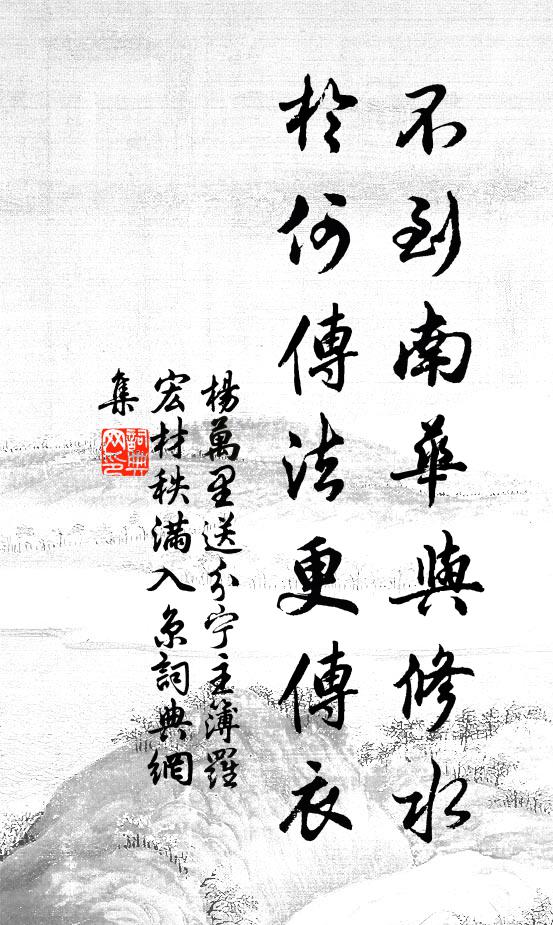 不到南華與修水
於何傳法更傳衣
楊萬里送分宁主簿羅
宏材秩滿入京詞典網
集
詞典
网印